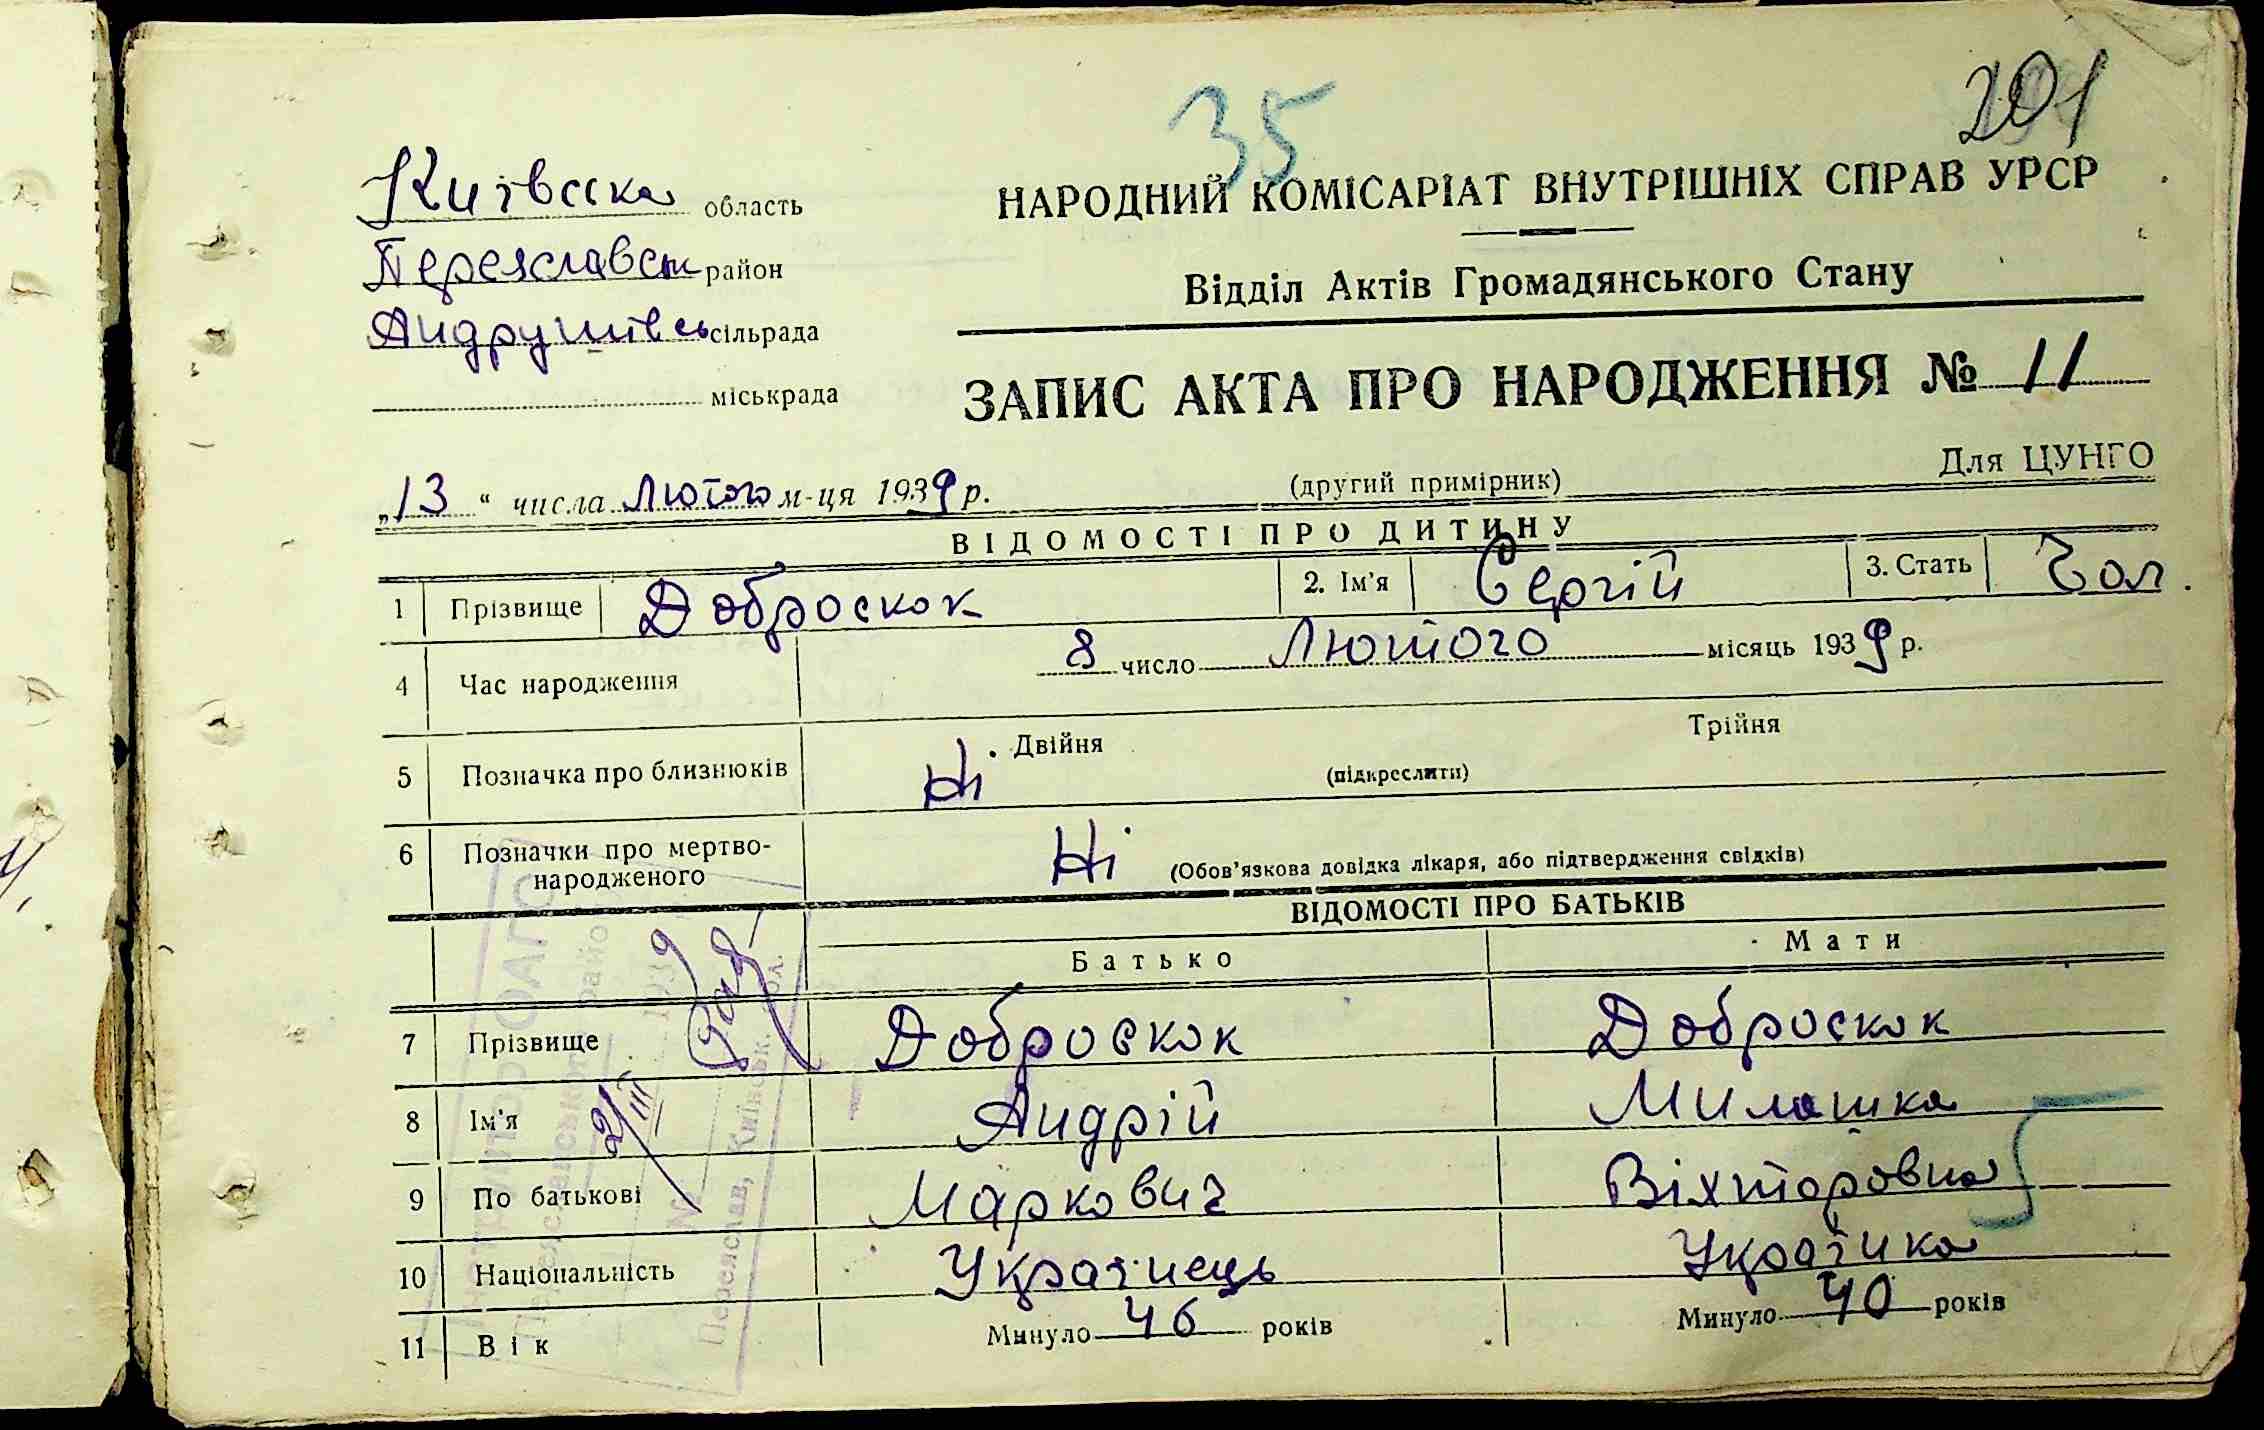 35
201
Київська область
Переяславськ район
Андрушівсь сільрада
міськрада
НАРОДНИЙ КОМІСАРІАТ ВНУТРІШНІХ СПРАВ УРСР
Відділ Актів Громадянського Стану
ЗАПИС АКТА ПРО НАРОДЖЕННЯ № 11
„13“ числа Лютого м-ця 1939 р.
(другий примірник)
Для ЦУНГО
ВІДОМОСТІ ПРО ДИТИНУ
1 Прізвище Доброскок 2. Ім'я Сергій 3. Стать Чол.
4 Час народження 8 число Лютого місяць 1939 р.
5 Позначка про близнюків Ні Двійня (підкреслити) Трійня
6 Позначки про мертво-
народженого Ні (Обов'язкова довідка лікаря, або підтвердження свідків)
ВІДОМОСТІ ПРО БАТЬКІВ
Батько Мати
7 Прізвище Доброскок Доброскок
8 Ім'я Андрій Милашка
9 По батькові Маркович Віхторовна
10 Національність Українець Українка
11 Вік Минуло 46 років Минуло 40 років